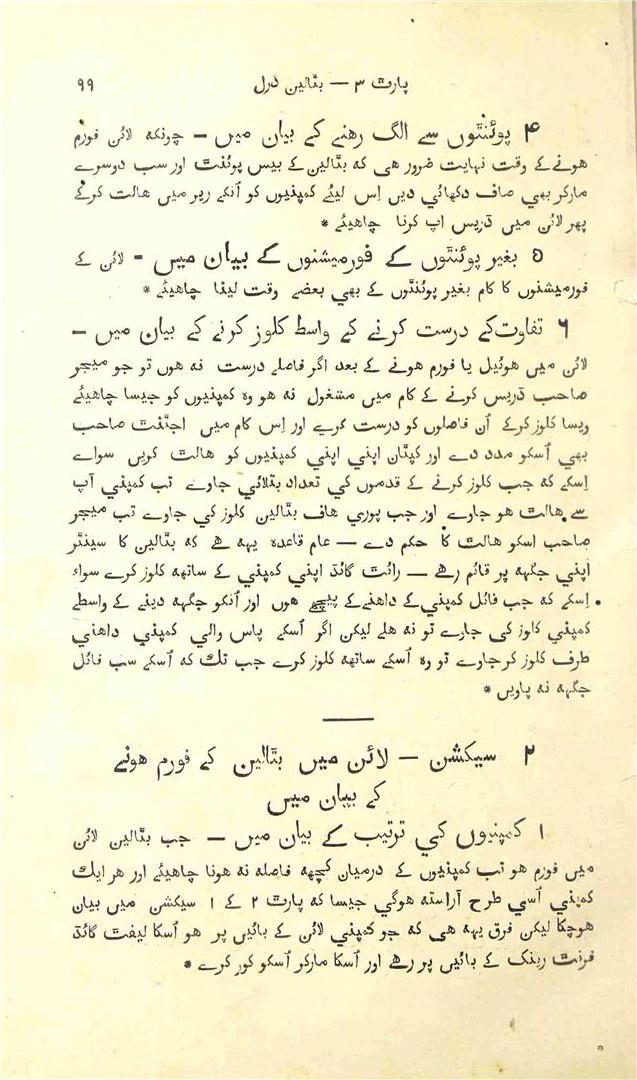 پارت ۳ — بٹالین ڈرل ۹۹
۴ پوئنٹوں سے الگ رهنے کے بیان میں — چونکه لائن فورم
هونے کے وقت نہایت ضرور هی که بٹالین کے بیس پوئنٹ اور سب دوسرے
مارکر بھی صاف دکھائي دیں اِس لیئے کمپنیوں کو اُنکے ریر میں هالٹ کرکے
پھر لائن میں ڈریس اپ کرنا چاهیئے *
۵ بغیر پوئنٹوں کے فورمیشنوں کے بیان میں - لائن کے
فورمیشنوں کا کام بغیر پوئنٹوں کے بھي بعضے وقت لینا چاهیئے *
۶ تفاوت کے درست کرنے کے واسط کلوز کرنے کے بیان میں —
لائن میں هوئیل یا فورم هونے کے بعد اگر فاصلے درست نه هوں تو جو میجر
صاحب ڈریس کرنے کے کام میں مشغول نه هو وه کمپنیوں کو جیسا چاهیئے
ویسا کلوز کرکے اُن فاصلوں کو درست کرے اور اِس کام میں اجٹنٹ صاحب
بھي اُسکو مدد دے اور کپتان اپني اپني کمپنیوں کو هالٹ کریں سواے
اِسکے که جب کلوز کرنے کے قدموں کي تعداد بتلائي جاوے تب کمپني آپ
سے هالٹ هو جاوے اور جب پوري هاف بٹالین کلوز کي جاوے تب میجر
صاحب اسکو هالٹ کا حکم دے — عام قاعده یهه هے که بٹالین کا سینٹر
اپني جگهه پر قائم رهے — رائٹ گائڈ اپني کمپني کے ساتھه کلوز کرے سواء
اِسکے که جب فائل کمپني کے داهنے کے پیچھے هوں اور اُنکو جگهه دینے کے واسطے
کمپني کلوز کی جاوے تو نه هلے لیکن اگر اُسکے پاس والي کمپني داهني
طرف کلوز کر جاوے تو وه اُسکے ساتھه کلوز کرے جب تک که اُسکے سب فائل
جگهه نه پاویں *
۲ سیکشن — لائن میں بٹالین کے فورم هونے
کے بیان میں
۱ کمپنیوں کي ترتیب کے بیان میں — جب بٹالین لائن
میں فورم هو تب کمپنیوں کے درمیان کچھه فاصله نه هونا چاهیئے اور هر ایک
کمپني اُسي طرح آراسته هوگي جیسا که پارٹ ۲ کے ۱ سیکشن میں بیان
هوچکا لیکن فرق یهه هی که جو کمپني لائن کے بائیں پر هو اُسکا لیفٹ گائڈ
فرنٹ رینک کے بائیں پر رهے اور اُسکا مارکر اُسکو کور کرے *